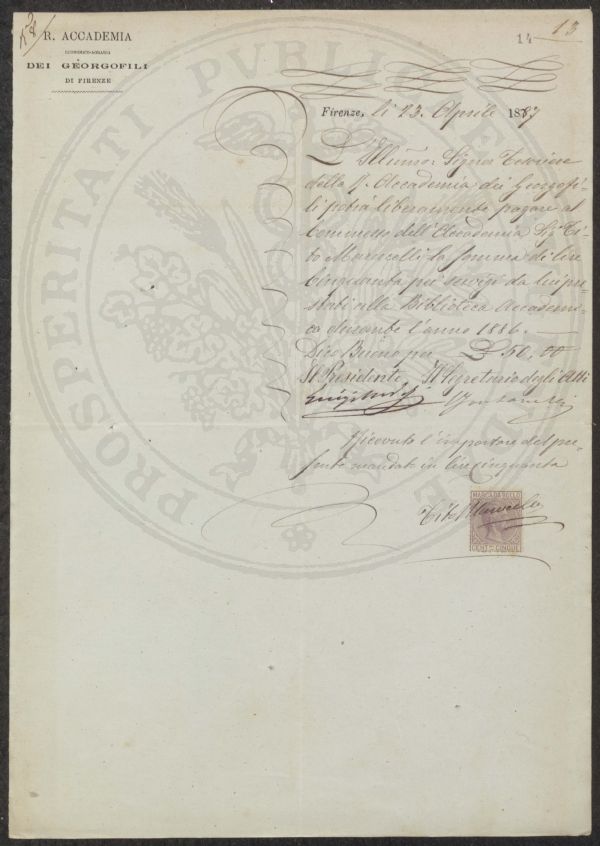 N° 8
14
13
R. ACCADEMIA
ECONOMICO-AGRARIA
DEI GEORGOFILI
DI FIRENZE
Firenze, li 23. Aprile 1887
L'Illumo Signor Tesoriere
della R. Accademia dei Georgofi-
li potrà liberamente pagare al
Commesso dell'Accademia Sig. Ti-
to Marucelli la somma di lire
Cinquanta per servigi da lui pre-
stati alla Biblioteca Accademi-
ca durante l'anno 1886.
Dico Buono per £ 50,00
Il Presidente Il Segretario degli Atti
Ricevuto l'importare del pre-
sente mandato in lire cinquanta
Tito Marucelli
MARCA DA BOLLO
CENT. CINQUE
PROSPERITATI PUBLICAE